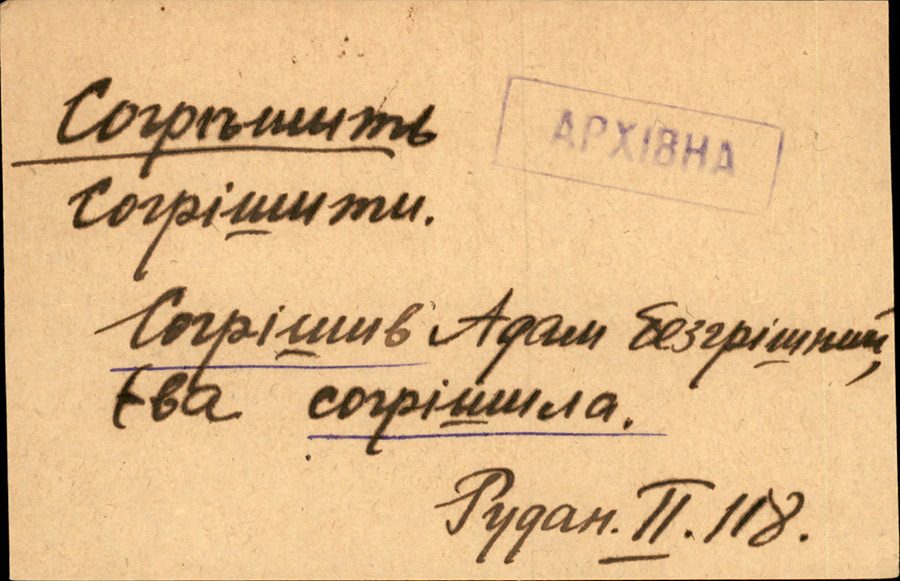 Согрѣшить
АРХІВНА
Согрішити.
Согрішив Адам безгрішний,
Єва согрішила.
Рудан. II. 118.